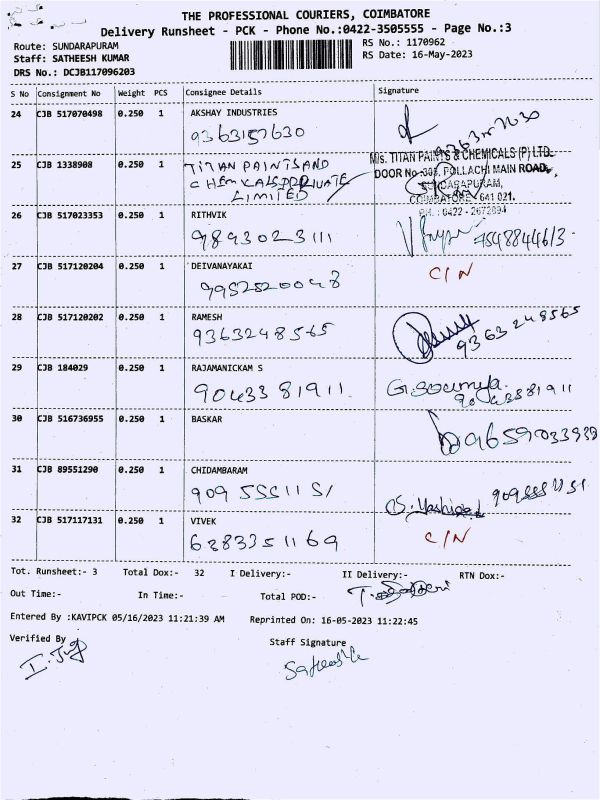 THE PROFESSIONAL COURIERS, COIMBATORE
Delivery Runsheet - PCK - Phone No.:0422-3505555 - Page No.:3
Route: SUNDARAPURAM
RS No.: 1170962
Staff: SATHEESH KUMAR
RS Date: 16-May-2023
DRS No.: DCJB117096203
S No Consignment No Weight PCS Consignee Details Signature
24 CJB 517070498 0.250 1 AKSHAY INDUSTRIES
9363157630
9363157630
25 CJB 1338908 0.250 1 TITAN PAINTS AND
CHEMICALS PRIVATE
LIMITED
M/s. TITAN PAINTS & CHEMICALS (P) LTD.
DOOR No. 305, POLLACHI MAIN ROAD,
SUNDARAPURAM,
COIMBATORE - 641 021.
PH. : 0422 - 2672894
26 CJB 517023353 0.250 1 RITHVIK
9893023111
7548844613
27 CJB 517120204 0.250 1 DEIVANAYAKAI C/N
9952520048
28 CJB 517120202 0.250 1 RAMESH
9363248565 9363248565
29 CJB 184029 0.250 1 RAJAMANICKAM S
9043381911 G. Soumya.
9043381911
30 CJB 516736955 0.250 1 BASKAR
9659033939
31 CJB 89551290 0.250 1 CHIDAMBARAM
9095551151 9095551151
32 CJB 517117131 0.250 1 VIVEK
6383351169 C/N
Tot. Runsheet:- 3 Total Dox:- 32 I Delivery:- II Delivery:- RTN Dox:-
Out Time:- In Time:- Total POD:-
Entered By :KAVIPCK 05/16/2023 11:21:39 AM Reprinted On: 16-05-2023 11:22:45
Verified By Staff Signature
Satheesh